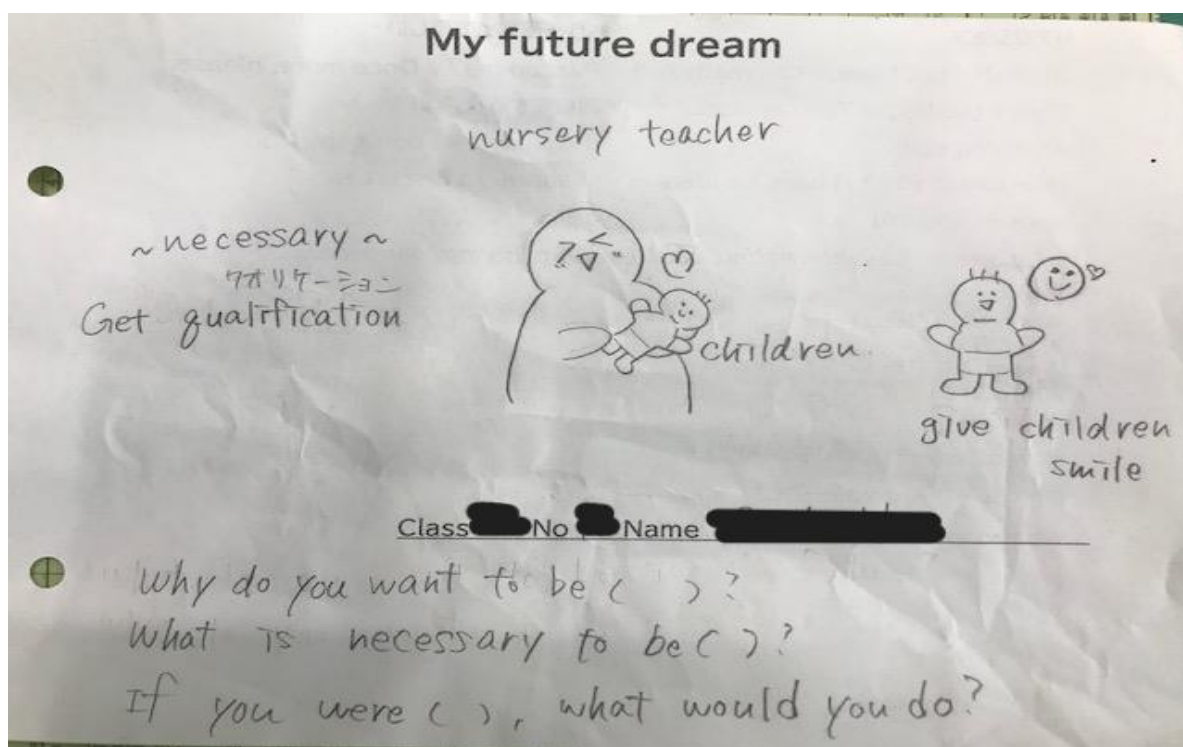 My future dream
nursery teacher
~necessary~
クオリケーション
Get qualification
children.
give children
smile
Class No Name
Why do you want to be ( )?
What is necessary to be ( )?
If you were ( ), what would you do?